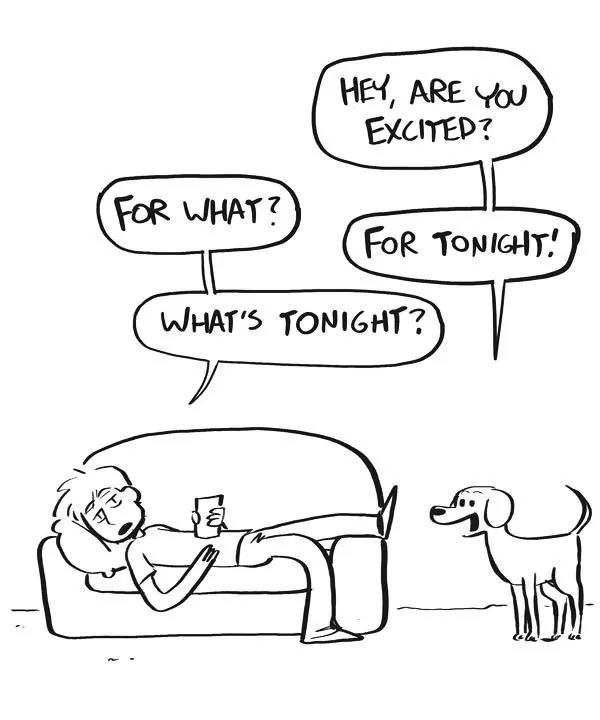 HEY, ARE YOU
EXCITED?
FOR WHAT?
FOR TONIGHT!
WHAT'S TONIGHT?